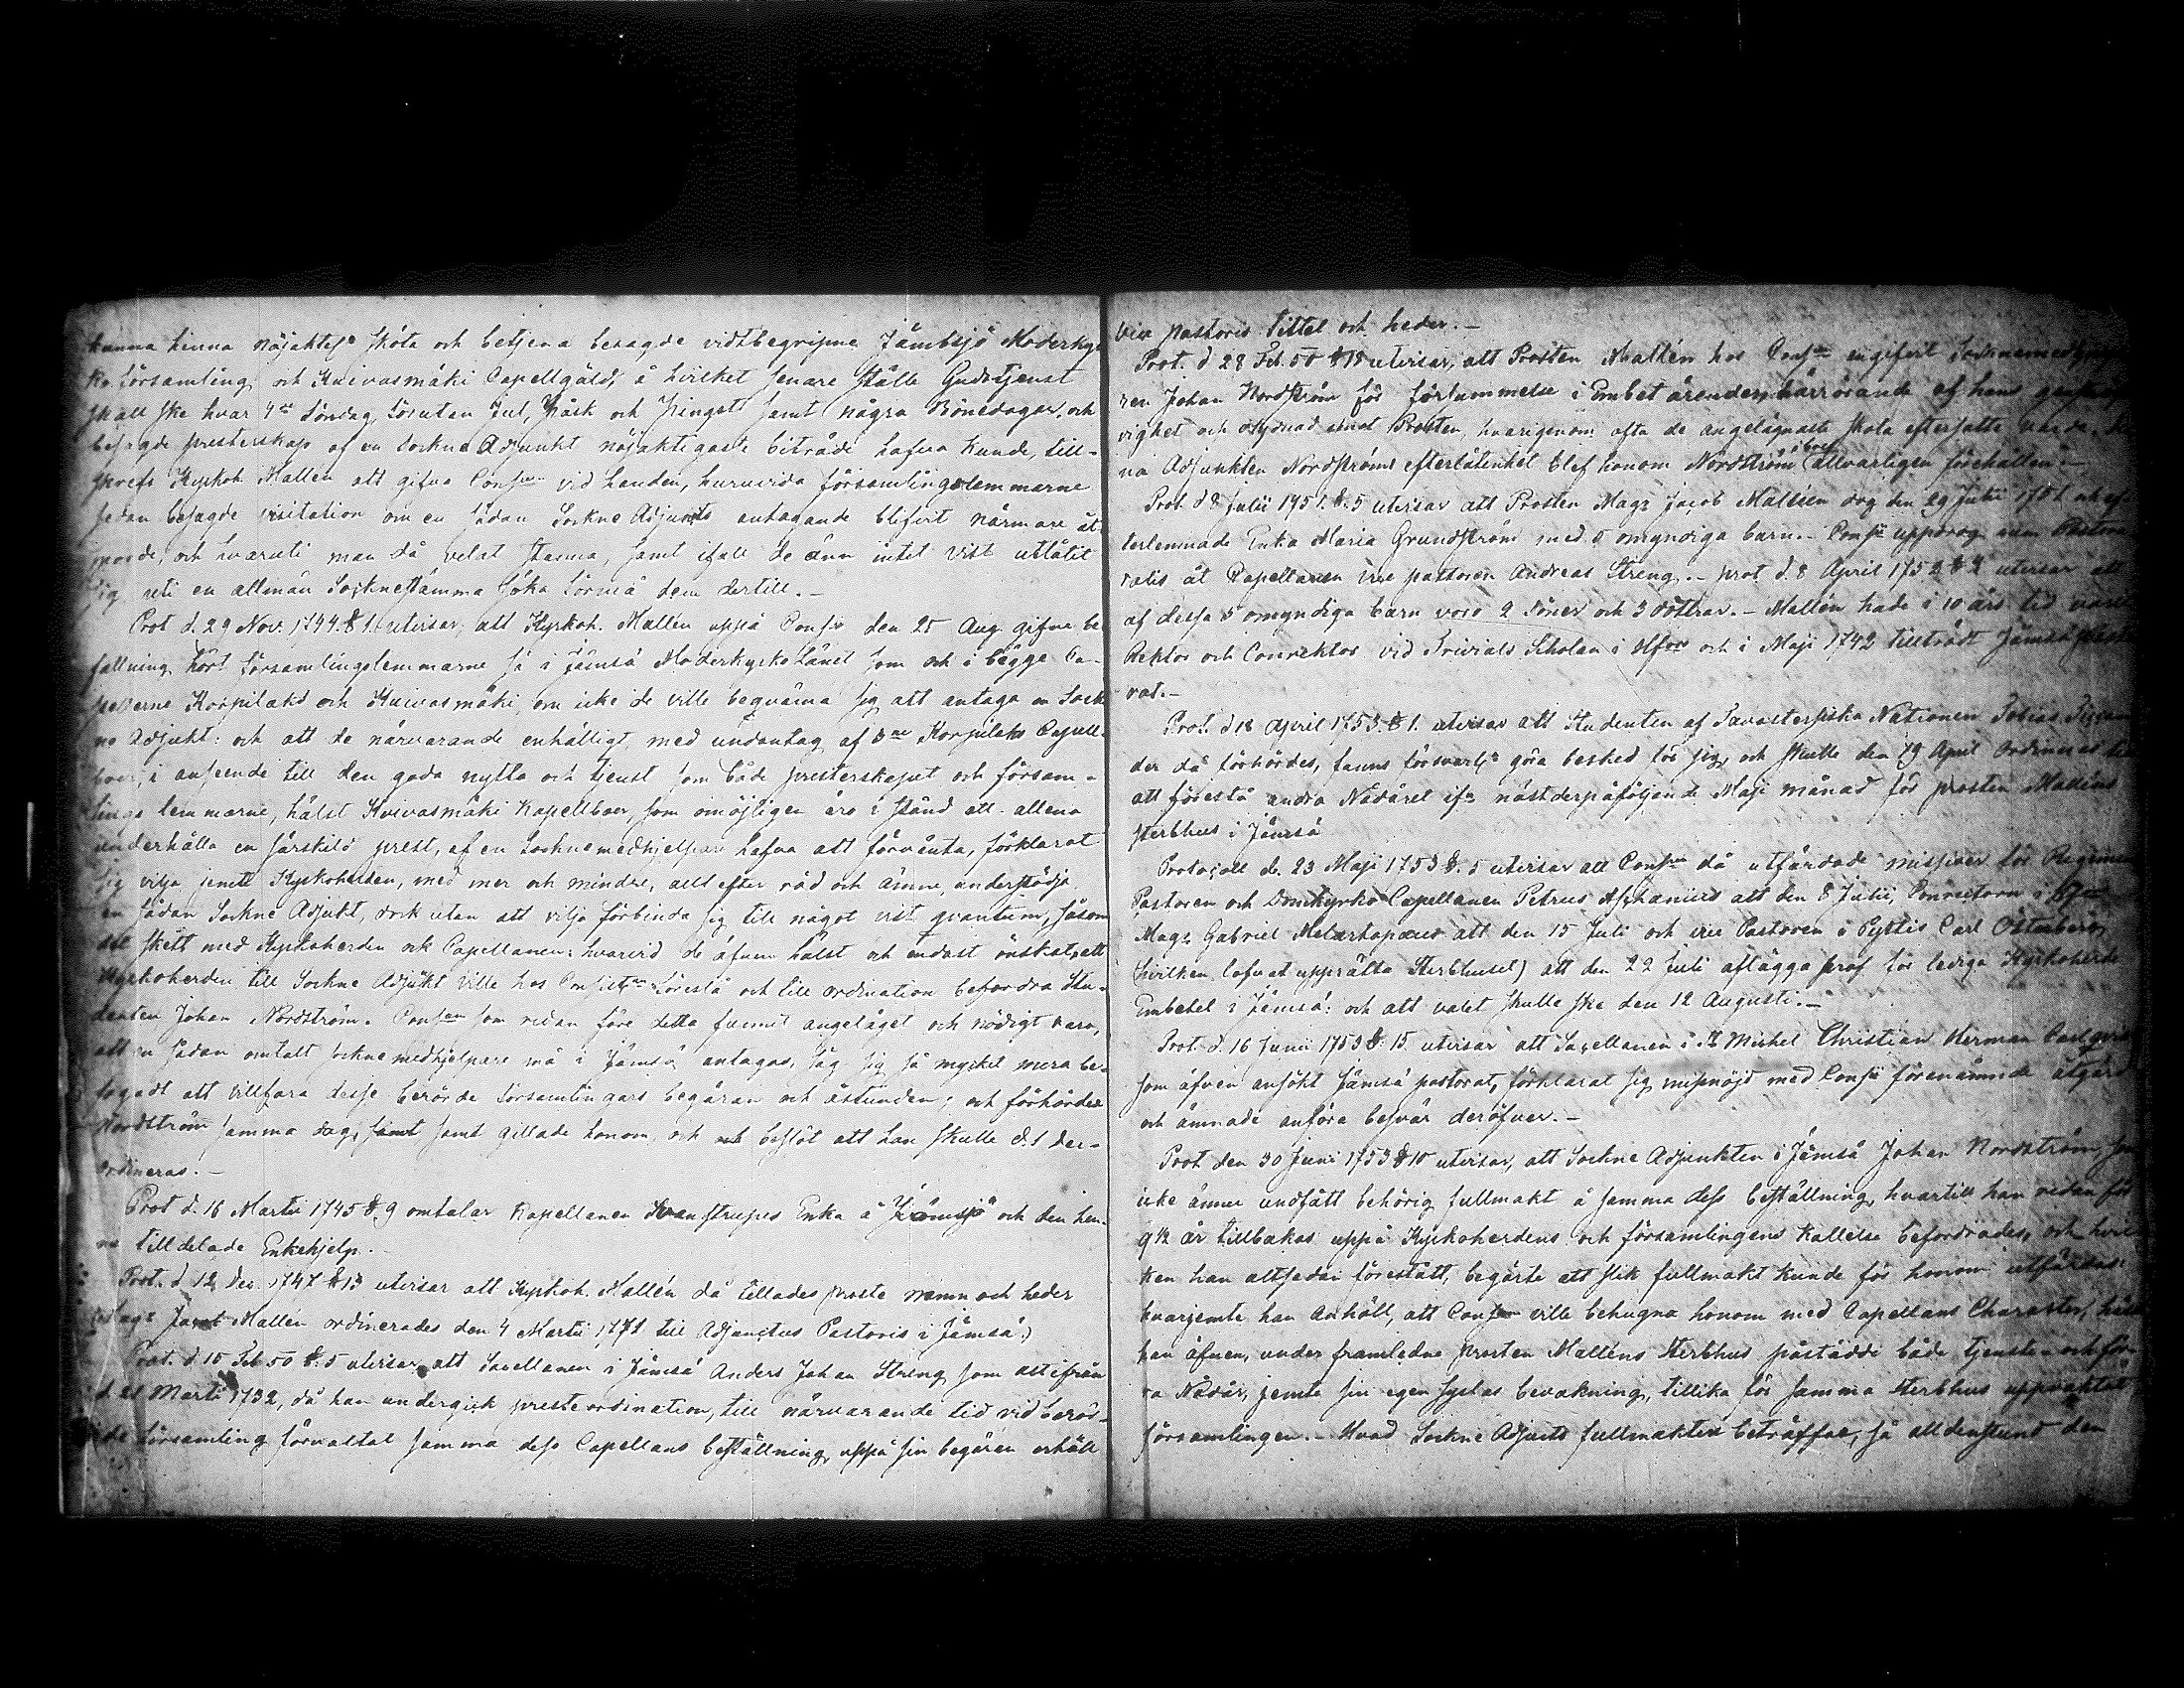 kunna hinna nöjaktel. sköta och betjena besagde vidtbegripne Jämbsjö Moderkyr
ko församling och Kuivasmäki Capellgäld, å hvilket senare ställe Gudstjenst
skall ske hvar 4de Söndag, förutan Jul, Påsk och Pingest samt några Bönedagar, och
besagde presterskap af en Sockne Adjunkt nöjaktigaste biträde hafva kunde, till-
skrefs Kyrkoh Mallen att gifva Consm vid handen, huruvida församlingslemmarne
sedan besagde visitation om en sådan Sockne Adjuncts antagande blifvit närmare åt-
sporde, och hvaruti man då velat stanna, samt ifall de ännu intet vist utlåtit
sig uti en allmän Socknestämma söka förmå dem dertill.-
Prot d. 29 Nov. 1744. § 1. utvisar, att Kyrkoh. Mallén uppå Consii den 25 Aug. gifne be
fallning hört församlingslemmarne så i Jämsä Moderkyrkolänet som och i bägge Ca-
pellerne Korpilaks och Kuivasmäki, om icke de ville beqväma sig att antaga en Sock
ne Adjukt: och att de närvarande enhälligt, med undantag af 3ne Korpilaks Capell-
boer, i anseende till den goda nytta och tjenst som både presterskapet och försam-
lings lemmarne, hälst Kuivasmäki Kapellboer, som omöjligen äro i stånd att allena
underhålla en särskild prest, af en Socknemedhjelpare hafva att förvänta, förklarat
sig vilja jemte Kyrkoherden, med mer och mindre, allt efter råd och ämne, understödja
en sådan Sockne Adjukt, dock utan att vilja förbinda sig till något vist qvantum, såsom
det skett med Kyrkoherden och Capellanen: hvarvid de äfven hälst och endast önskat, att
Kyrkoherden till Sockne Adjukt ville hos Consistm föreslå och till ordination befordra Stu-
denten Johan Nordström. Consen som redan före detta funnit angeläget och nödigt vara,
att en sådan omtalt socknemedhjelpare må i Jämsä antagas, såg sig så mycket mera be-
fogadt att villfara desse berörde församlingars begäran och åstundan; och förhördes
Nordström samma dag, samt samt gillade honom och och beslöt att han skulle d. 1 Der-
ordineras.-
Prot d. 16 Martii 1745 §. 9 omtalar Kapellanen Enka i Jämsjö och den hen-
ne tilldelade Enkehjelp.-
Prot. d. 12 Dec. 1747 § 13 utvisar att Kyrkoh. Mallén då tillades proste namn och heder
Mallén ordinerades den 4 Martii till Adjunctus Pastoris i Jämsä)
Prot. d. 15 Feb 50 §. 5 utvisar, att Sacellanen i Jämsä Anders Johan Streng som allt ifrån
d. Marti 1732, då han undergick presteordination, till närvarande tid vid berör-
de församling förvaltat samma dess Capellans beställning, uppå sin begäran erhöll
vice pastoris Tittel och heder.-
Prot. d 28 Feb. 50 § 18 utvisar, att Prosten Mallén hos Consm angifvit Socknemedhjelpa
ren Johan Nordström för försummelse i Embets ärenden, härrörande af hans
vighet och olydnad emot Prosten, hvarigenom ofta de angelägnaste skola eftersatte varda.
na Adjunkten Nordströms efterlåtenhet blef honom Nordström i bref allvarligen förehållen.-
Prot. d 8 Julii 1751. §. 5 utvisar att Prosten Magr Jacob Mallén dog den 29 Julii 1751 och ef-
terlemnade Enka Maria Grundström med 5 omyndiga barn.- Consii uppdrog curam Pasto-
ralis åt Capellanen vice pastoren Andreas Streng.- Prot. d. 8 April 1752 § 4 utvisar att
af dessa 5 omyndiga barn voro 2 Söner och 3 döttrar.- Mallén hade i 10 års tid varit
Rektor och Conrektor vid Trivials Scholan i Hfors och i Maji 1742 tillträdt Jämsä pasto
rat.-
Prot. d 18 April 1753. § 1. utvisar att Studenten af Tavastersiska Nationen Tobias
der då förhördes, fanns försvarl. göra besked för sig, och skulle den 19 April ordineras till
att förestå andra Nådåret ifr. nästderpåföljande Maji månad för prosten Malléns
sterbhus i Jämsä
Protocoll d. 23 Maji 1753 §. 5 utvisar att Consm då utfärdade missiver för Regiments
Pastoren och Domkyrko Capellanen Petrus att den 8 Julii, Conrectorn i
Magr Gabriel Melartopæus att den 15 Juli och vice Pastoren i Pyttis Carl Österberg
(hvilken lofvat upprätta Sterbhuset) att den 22 Juli aflägga prof för lediga Kyrkoherde
Embetet i Jämsä: och att valet skulle ske den 12 Augusti.-
Prot. d. 16 Junii 1753 §. 15 utvisar att Sacellanen i St Michel Christian Herman
som äfven ansökt Jämsä pastorat, förklarat sig missnöjd med Consii förenämnde åtgärd
och ämnade anföra besvär deröfver.-
Prot den 30 Junii 1753 § 10 utvisar, att Sockne Adjunkten i Jämsä Johan Nordström, som
icke ännu undfått behörig fullmakt å samma dess beställning, hvartill han redan för
9½ år tillbakas uppå Kyrkoherdens och församlingens kallelse befordrades, och hvil
ken han altsedan förestått, begärte att slik fullmakt kunde för honom utfärdas:
hvarjemte han anhöll, att Consm ville behugna honom med Capellans Character,
han äfven, under framledne prosten Malléns Sterbhus påstådde både tjenste- och för-
ra Nådår, jemte sin egen syslas bevakning, tillika för samma sterbhus uppvaktat
församlingen.- Hvad Sockne Adjuncts fullmakten beträffar, så alldenstund den